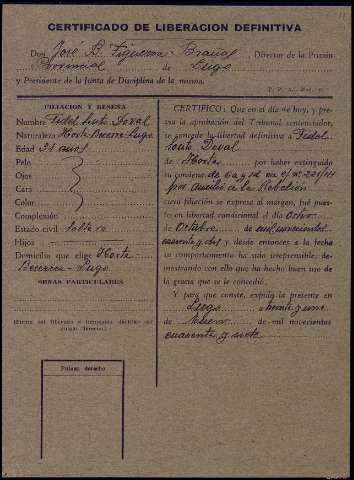 CERTIFICADO DE LIBERACION DEFINITIVA
Don José B. Figueroa Director de la Prisión
Provincial de Lugo
y Presidente de la Junta de Disciplina de la misma.
FILIACION Y RESEÑA
Nombre Fidel Souto Doval
Naturaleza Horta Becerreá Lugo
Edad 31 años
Pelo
Ojos
Cara
Color
Complexión
Estado civil soltero
Hijos
Domicilio que elige Horta
Becerreá - Lugo
SEÑAS PARTICULARES
(Firma del liberado e impresión dactilar del
pulgar derecho)
Pulgar derecho
CERTIFICO: Que en el día de hoy, y previa
la aprobación del Tribunal sentenciador,
se concede la libertad definitiva a Fidel
Souto Doval
de Horta por haber extinguido
su condena de 6 a y 1 d en
por auxilio a la Rebelión
cuya filiación se expresa al margen, fué puesto
en libertad condicional el día Ocho
de Octubre de mil novecientos
cuarenta y dos y desde entonces a la fecha
su comportamiento ha sido irreprensible, demostrando
con ello que ha hecho buen uso de
la gracia que se le concedió.
Y para que conste, expido la presente en
Lugo a treinta y uno
de Enero de mil novecientos
cuarenta y siete